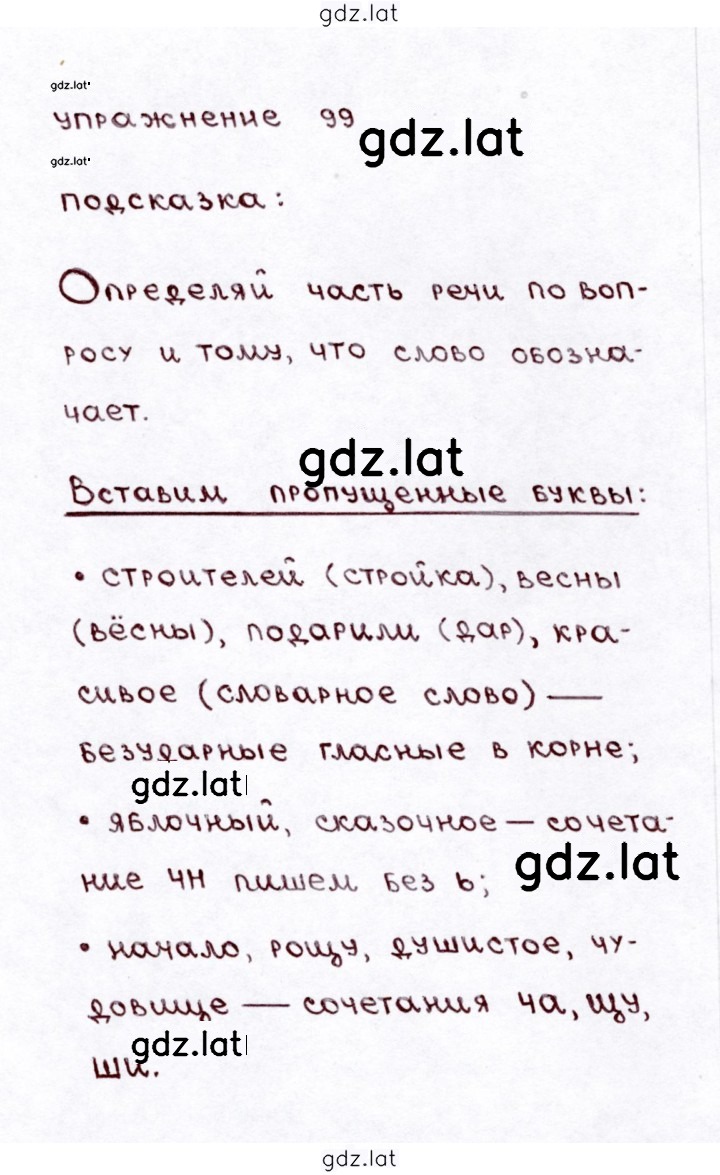 gdz.lat
gdz.lat
упражнение 99
gdz.lat
gdz.lat
подсказка:
Определяй часть речи по воп-
росу и тому, что слово обозна-
чает.
gdz.lat
Вставим пропущенные буквы:
• строителей (стройка), весны
(вёсны), подарили (дар), кра-
сивое (словарное слово) —
безударные гласные в корне;
gdz.lat
• яблочный, сказочное — сочета-
ние чн пишем без ь;
gdz.lat
• начало, рощу, душистое, чу-
довище — сочетания ча, щу,
gdz.lat
ши.
gdz.lat